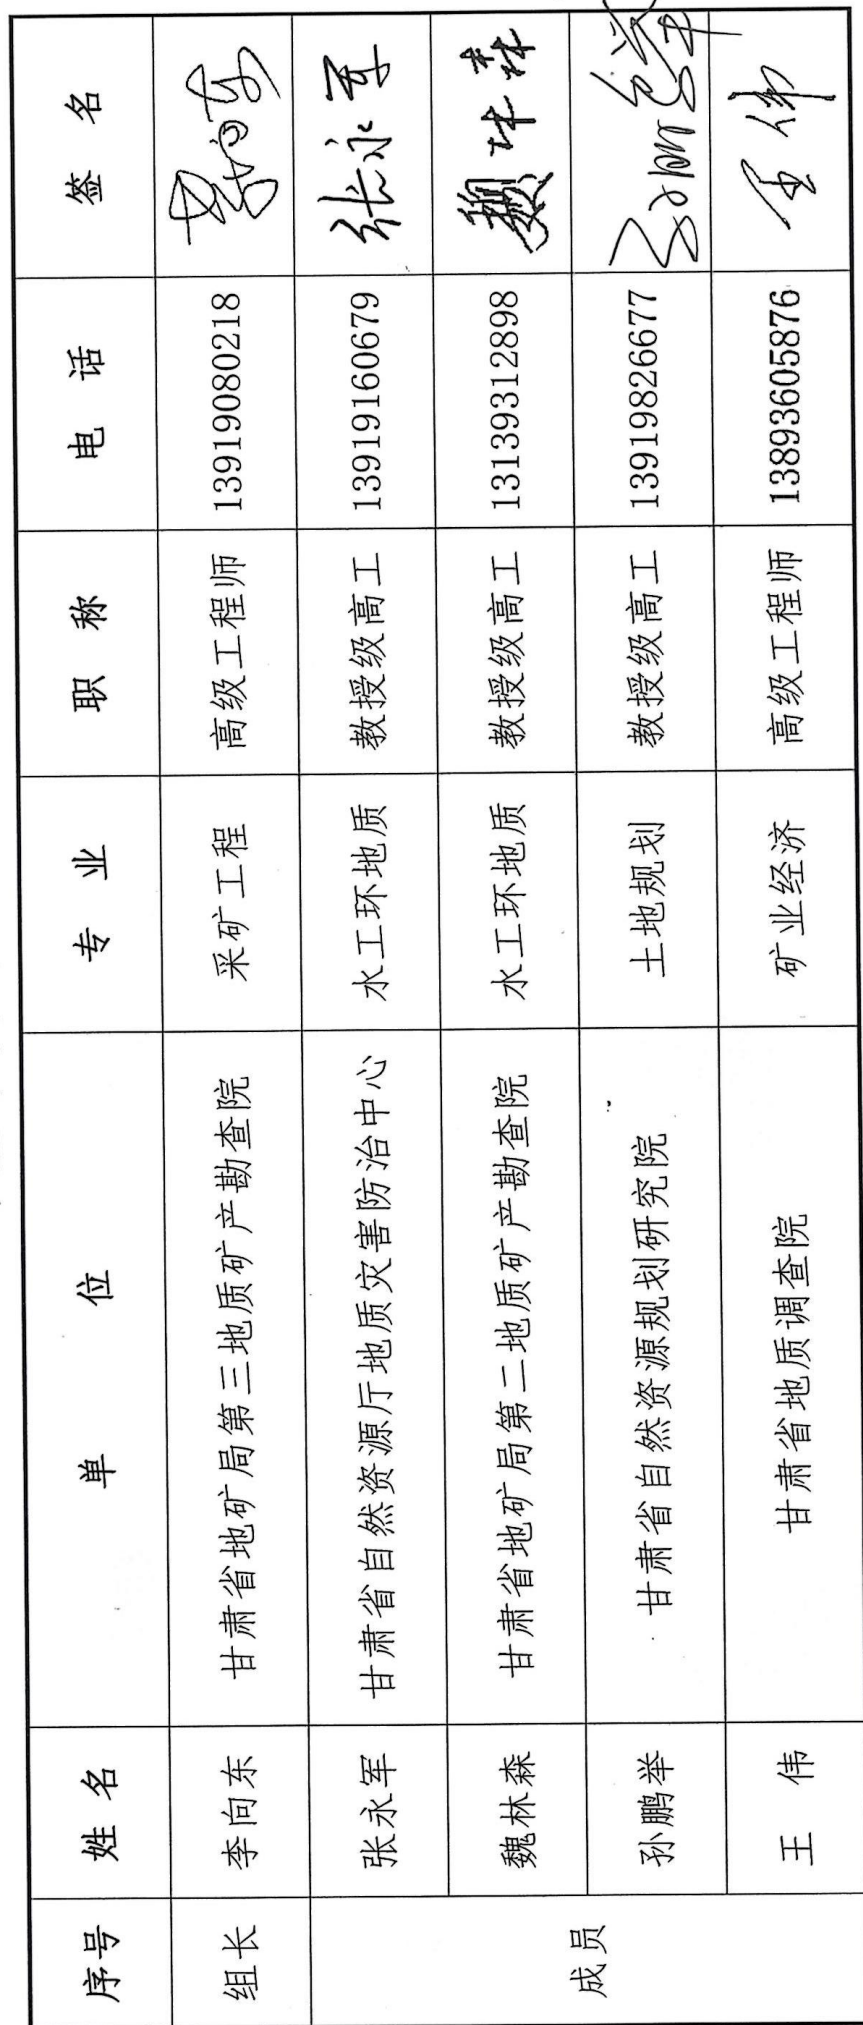 序号 姓名 单位 专业 职称 电话 签名
组长 李向东 甘肃省地矿局第三地质矿产勘查院 采矿工程 高级工程师 13919080218 李向东
成员 张永军 甘肃省自然资源厅地质灾害防治中心 水工环地质 教授级高工 13919160679 张永军
魏林森 甘肃省地矿局第二地质矿产勘查院 水工环地质 教授级高工 13139312898 魏林森
孙鹏举 甘肃省自然资源规划研究院 土地规划 教授级高工 13919826677 孙鹏举
王伟 甘肃省地质调查院 矿业经济 高级工程师 13893605876 王伟